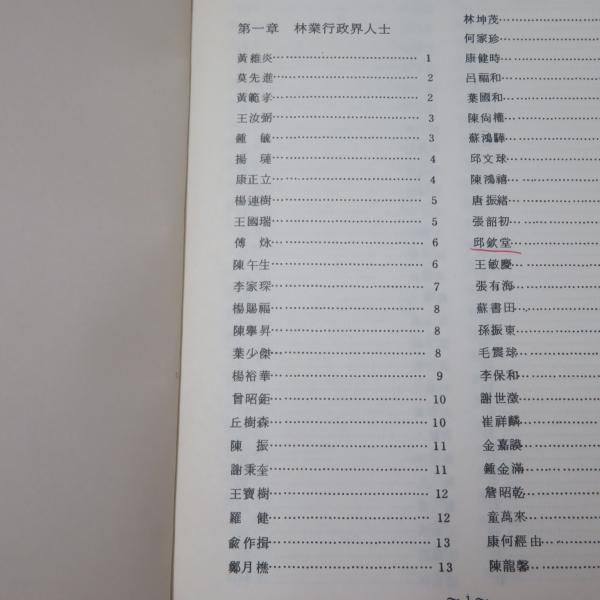 第一章　林業行政界人士
黃維炎 1
莫先進 2
黃範孝 2
王汝弼 3
鍾　毓 3
楊　璉 4
康正立 4
楊連樹 5
王國瑞 5
傅　焿 6
陳午生 6
李家琛 7
楊賜福 8
陳舉昇 8
葉少傑 8
楊裕華 9
曾昭鉅 10
丘樹森 10
陳　振 11
謝秉奎 11
王寶樹 12
羅　健 12
兪作揖 13
鄭月樵 13
林坤茂
何家珍
康健時
呂福和
葉國和
陳尙權
蘇鴻驊
邱文球
陳鴻禧
唐振緒
張韶初
邱欽堂
王敏慶
張有海
蘇書田
孫振東
毛震球
李保和
謝世澂
崔祥麟
金嘉謨
鍾金滿
詹昭乾
童萬來
康何經由
陳龍馨
～ 1 ～